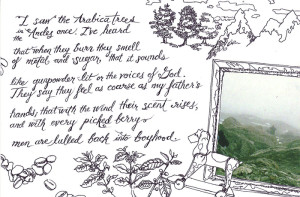 I saw the Arabica trees
in the Andes once. I've heard
that when they burn they smell
of metal and sugar, that it sounds
like gunpowder lit or the voices of God.
They say they feel as coarse as my father's
hands; that with the wind their scent rises,
and with every picked berry
men are lulled back into boyhood.